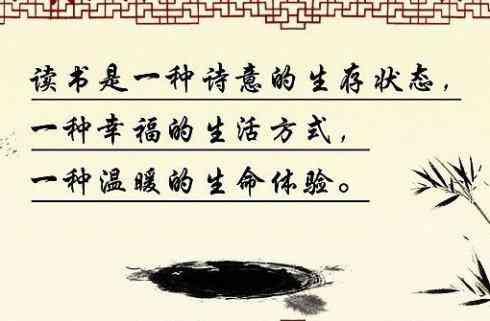 读书是一种诗意的生存状态，
一种幸福的生活方式，
一种温暖的生命体验。